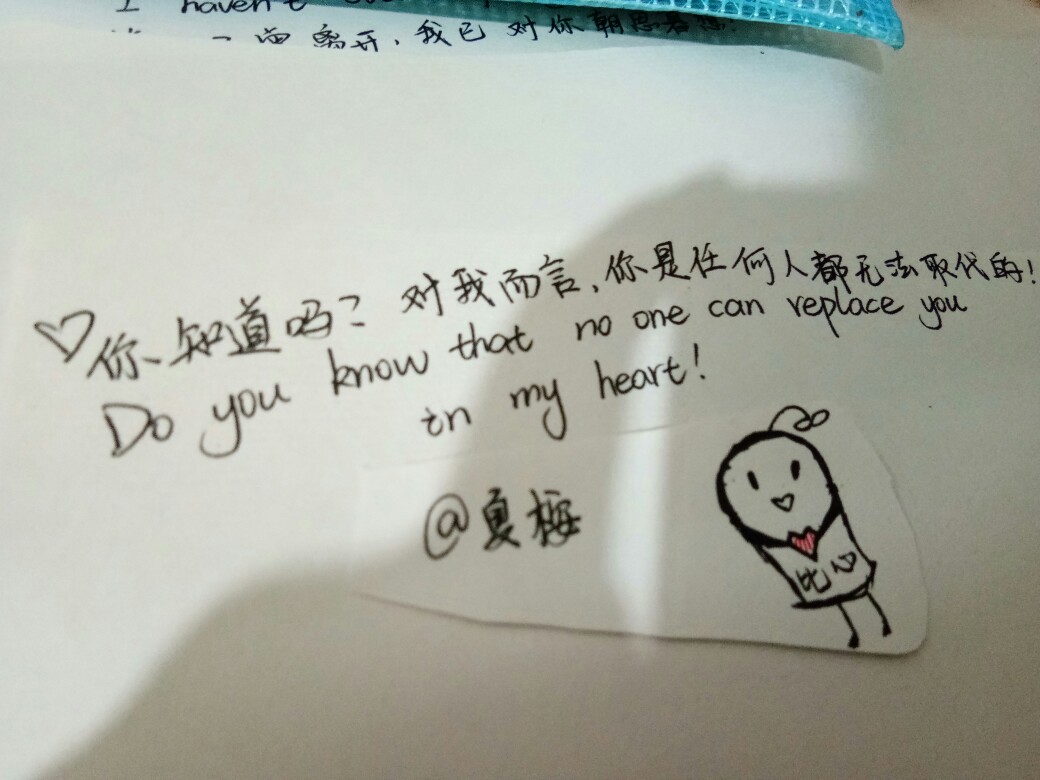 I haven't
离开,我已对你朝思暮想.
你知道吗?对我而言,你是任何人都无法取代的!
Do you know that no one can replace you
in my heart!
@夏梅
比心